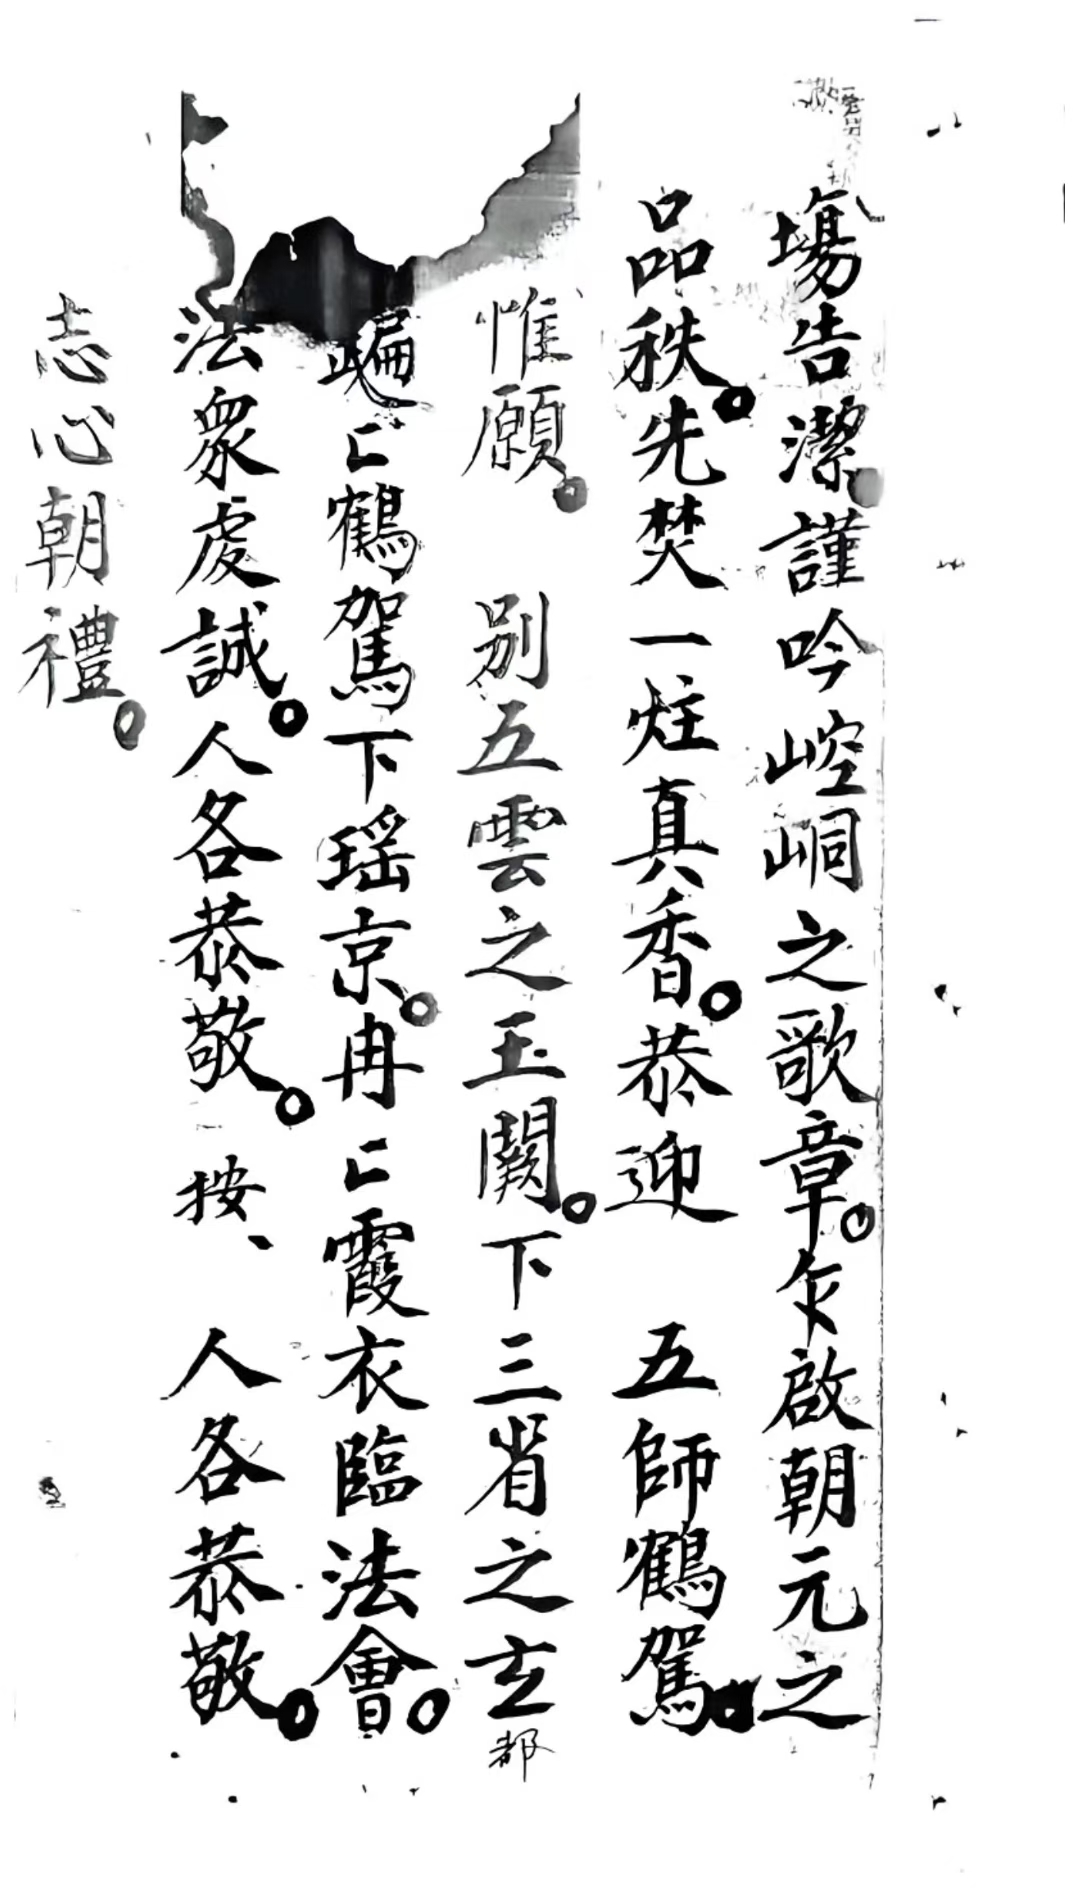 塲告潔。謹吟崆峒之歌章。乍啟朝元之
品秩。先焚一炷真香。恭迎 五師鶴駕。
惟願。 别五雲之玉闕。下三省之玄都
翩〻鶴駕下瑶京。冉〻霞衣臨法會。
法衆虔誠。人各恭敬。按、 人各恭敬。
志心朝禮。